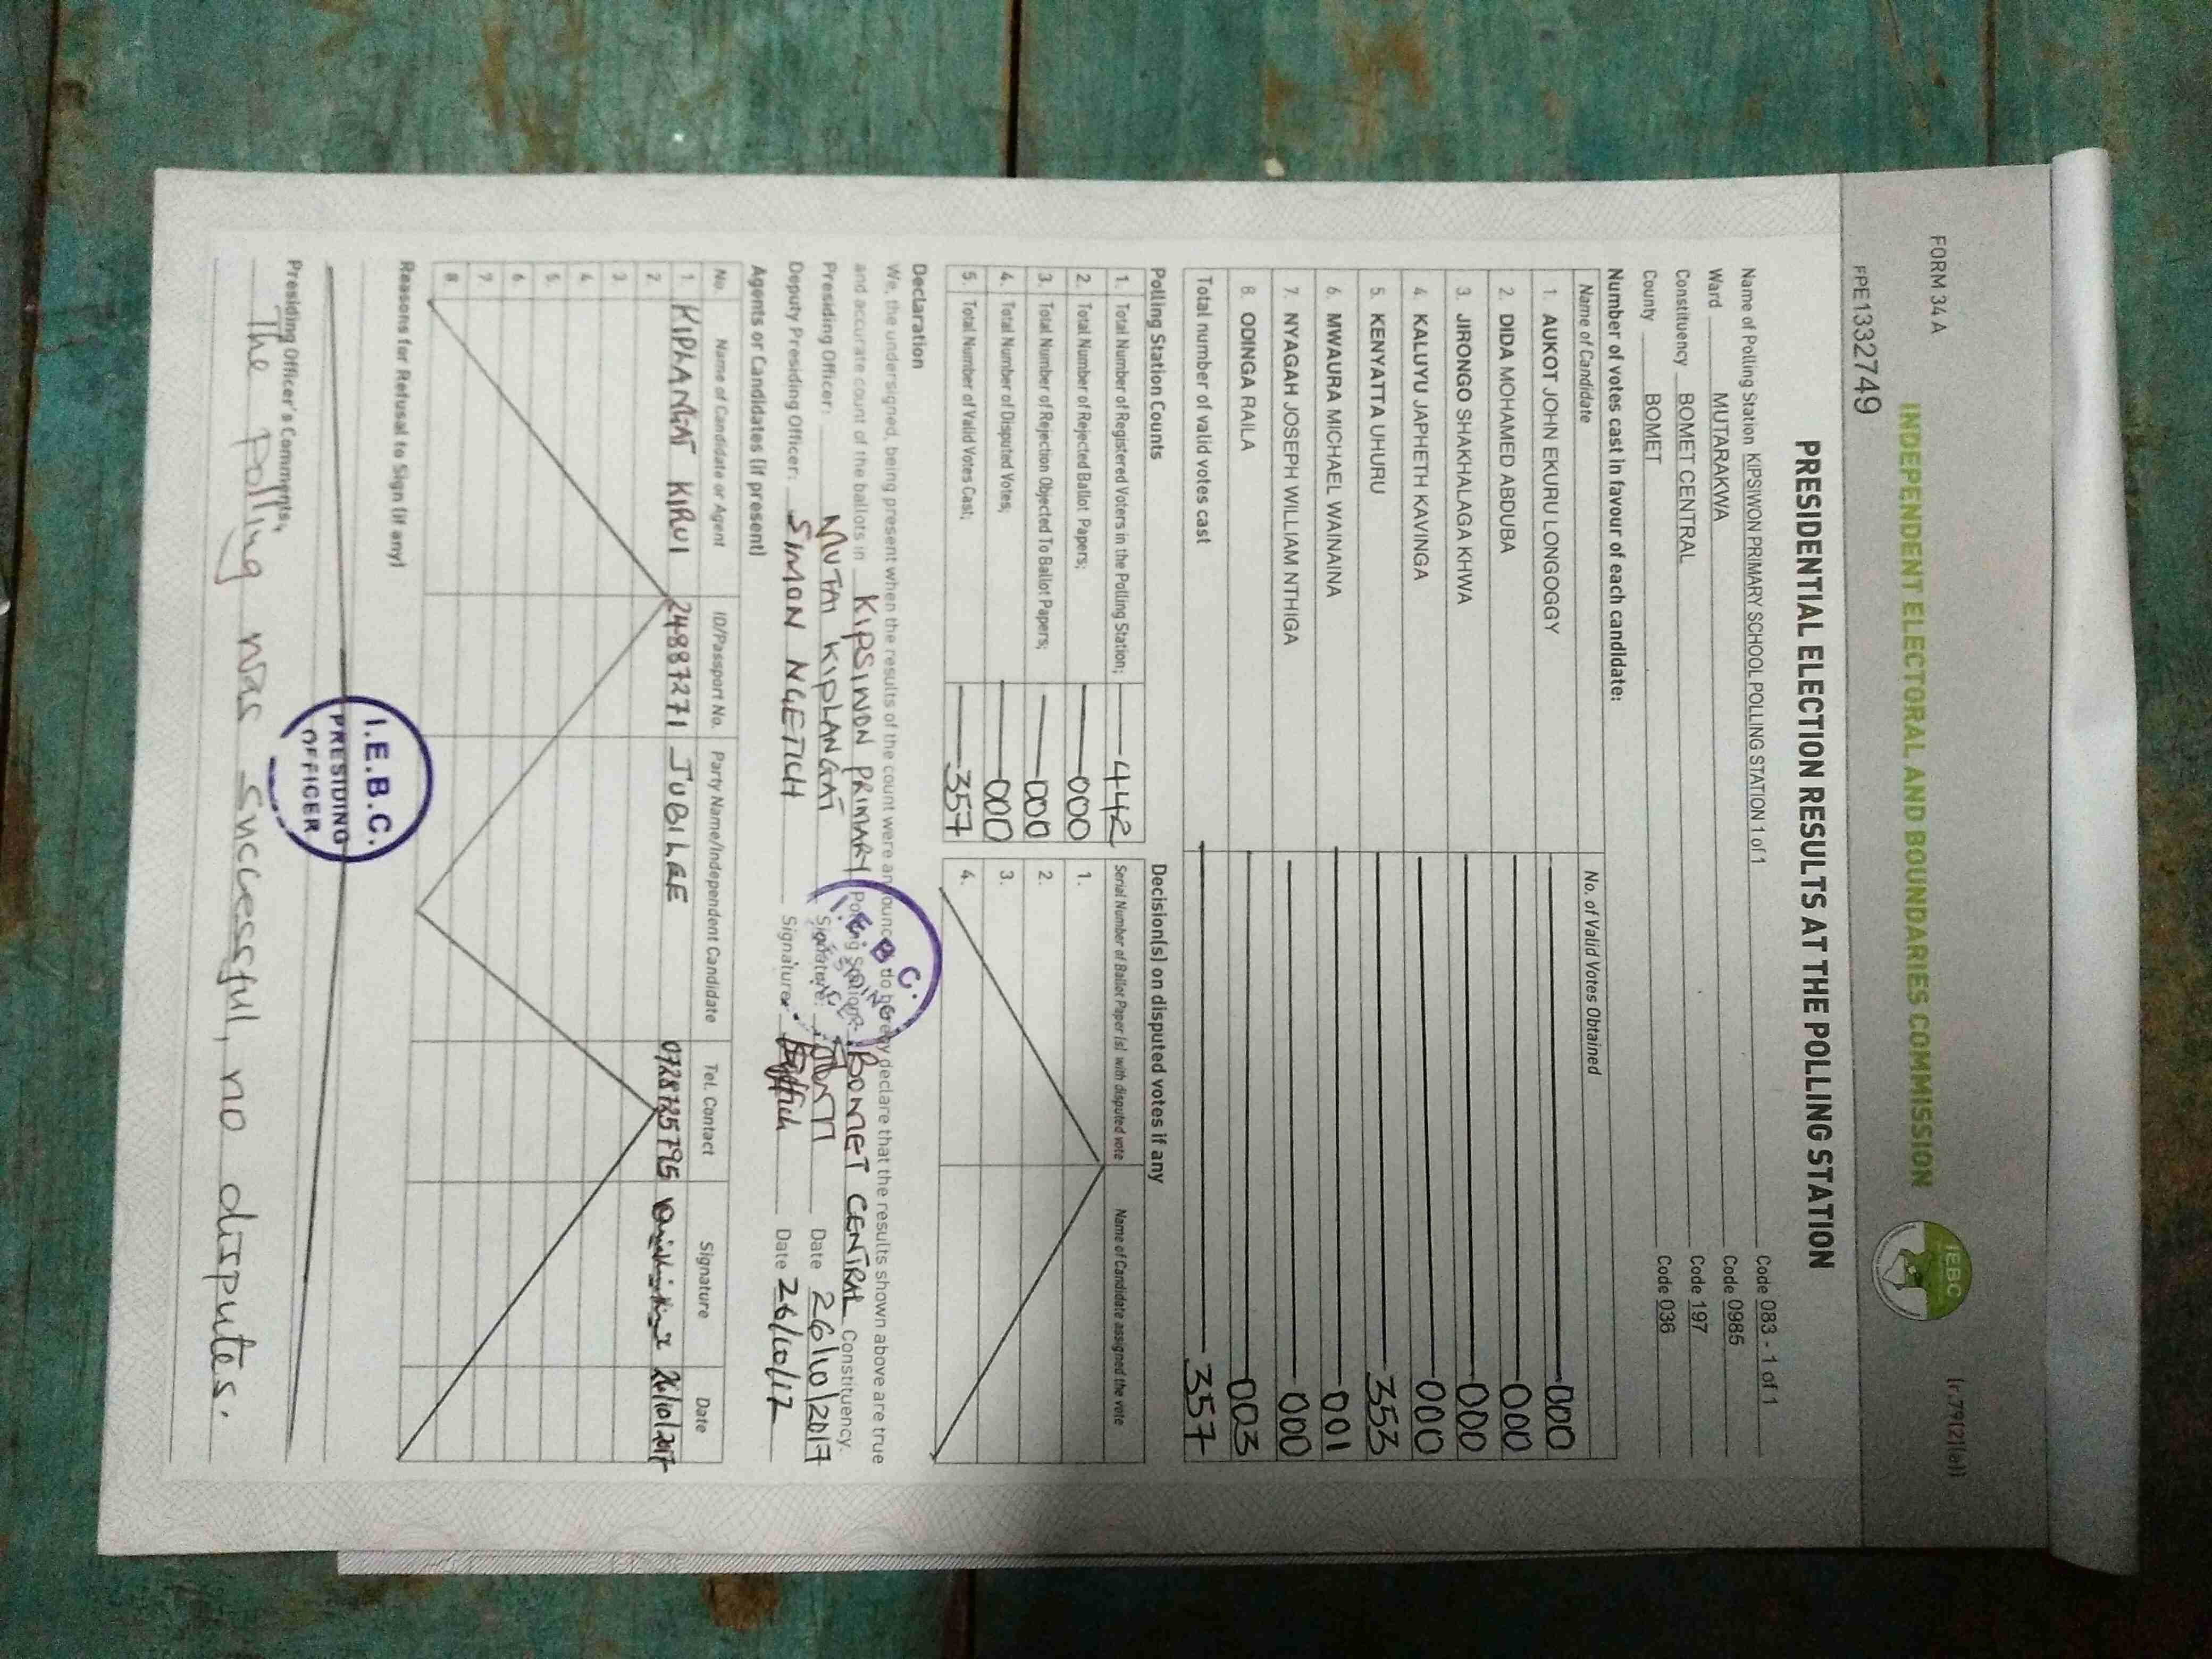 FORM 34A
(r.79(2)(a))
INDEPENDENT ELECTORAL AND BOUNDARIES COMMISSION
IEBC
FPE1332749
PRESIDENTIAL ELECTION RESULTS AT THE POLLING STATION
Name of Polling Station KIPSIWON PRIMARY SCHOOL POLLING STATION 1 of 1 Code 083 - 1 of 1
Ward MUTARAKWA Code 0985
Constituency BOMET CENTRAL Code 197
County BOMET Code 036
Number of votes cast in favour of each candidate:
Name of Candidate No. of Valid Votes Obtained
1. AUKOT JOHN EKURU LONGOGGY 000
2. DIDA MOHAMED ABDUBA 000
3. JIRONGO SHAKHALAGA KHWA 000
4. KALUYU JAPHETH KAVINGA 000
5. KENYATTA UHURU 353
6. MWAURA MICHAEL WAINAINA 001
7. NYAGAH JOSEPH WILLIAM NTHIGA 000
8. ODINGA RAILA 003
Total number of valid votes cast 357
Polling Station Counts Decision(s) on disputed votes if any
1. Total Number of Registered Voters in the Polling Station; 442
2. Total Number of Rejected Ballot Papers; 000
3. Total Number of Rejection Objected To Ballot Papers; 000
4. Total Number of Disputed Votes; 000
5. Total Number of Valid Votes Cast; 357
Serial Number of Ballot Paper(s) with disputed vote Name of Candidate assigned the vote
1.
2.
3.
4.
Declaration
We, the undersigned, being present when the results of the count were announced, do hereby declare that the results shown above are true
and accurate count of the ballots in KIPSINON PRIMARY Polling Station, BOMET CENTRAL Constituency.
Presiding Officer: MUTAI KIPLANGAT Signature: Date 26/10/2017
Deputy Presiding Officer: SIMON NGETICH Signature: Date 26/10/17
I.E.B.C.
Agents or Candidates (if present)
No. Name of Candidate or Agent ID/Passport No. Party Name/Independent Candidate Tel. Contact Signature Date
1 KIPLANGAT KIRUI 24887271 JUBILEE 0728725795 26/10/2017
2
3
4
5
6
7
8
Reasons for Refusal to Sign (if any)
I.E.B.C.
PRESIDING
OFFICER
Presiding Officer's Comments;
The polling was successful, no disputes.